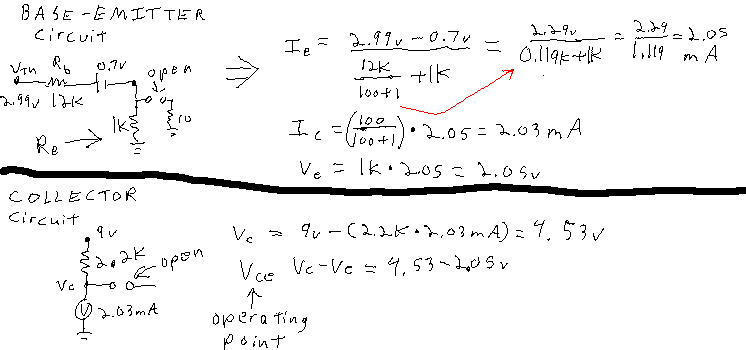 BASE-EMITTER
Circuit
VTH Rb 0.7v open
2.99v 12K
1K 10
Re
Ie = 2.99v-0.7v / 12K/100+1 +1K = 2.29v / 0.119K+1K = 2.29 / 1.119 = 2.05 mA
Ic = (100/100+1) • 2.05 = 2.03mA
Ve = 1K • 2.05 = 2.05v
COLLECTOR
Circuit
9v
2.2K open
Vc
V 2.03mA
Vc = 9v-(2.2K•2.03mA) = 4.53v
Vce Vc-Ve = 4.53-2.05v
operating
point